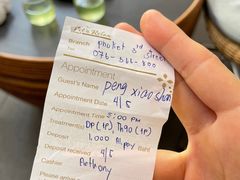 Branch phuket 3rd street
Tel 076-366-800
Appointment
Guest's Name peng xiao shan
Appointment Date 4/5
Appointment Time 5:00 PM
Treatment(s)
Deposit 1,000 Baht
Deposit received 4/5
Cashier Anthony
Please arrive